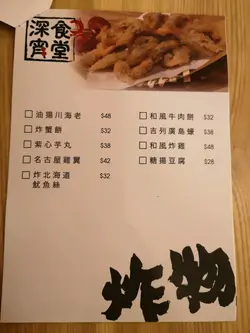 深宵食堂
□ 油揚川海老 $48
□ 炸蟹餅 $32
□ 紫心芋丸 $38
□ 名古屋雞翼 $42
□ 炸北海道 $32
魷魚絲
□ 和風牛肉餅 $32
□ 吉列廣島蠔 $38
□ 和風炸雞 $48
□ 糖揚豆腐 $28
炸物